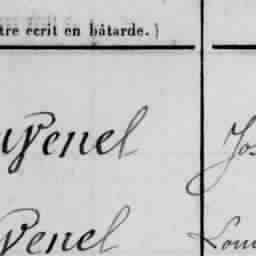 tre écrit en bâtarde.)
uvenel Jos
venel Loui